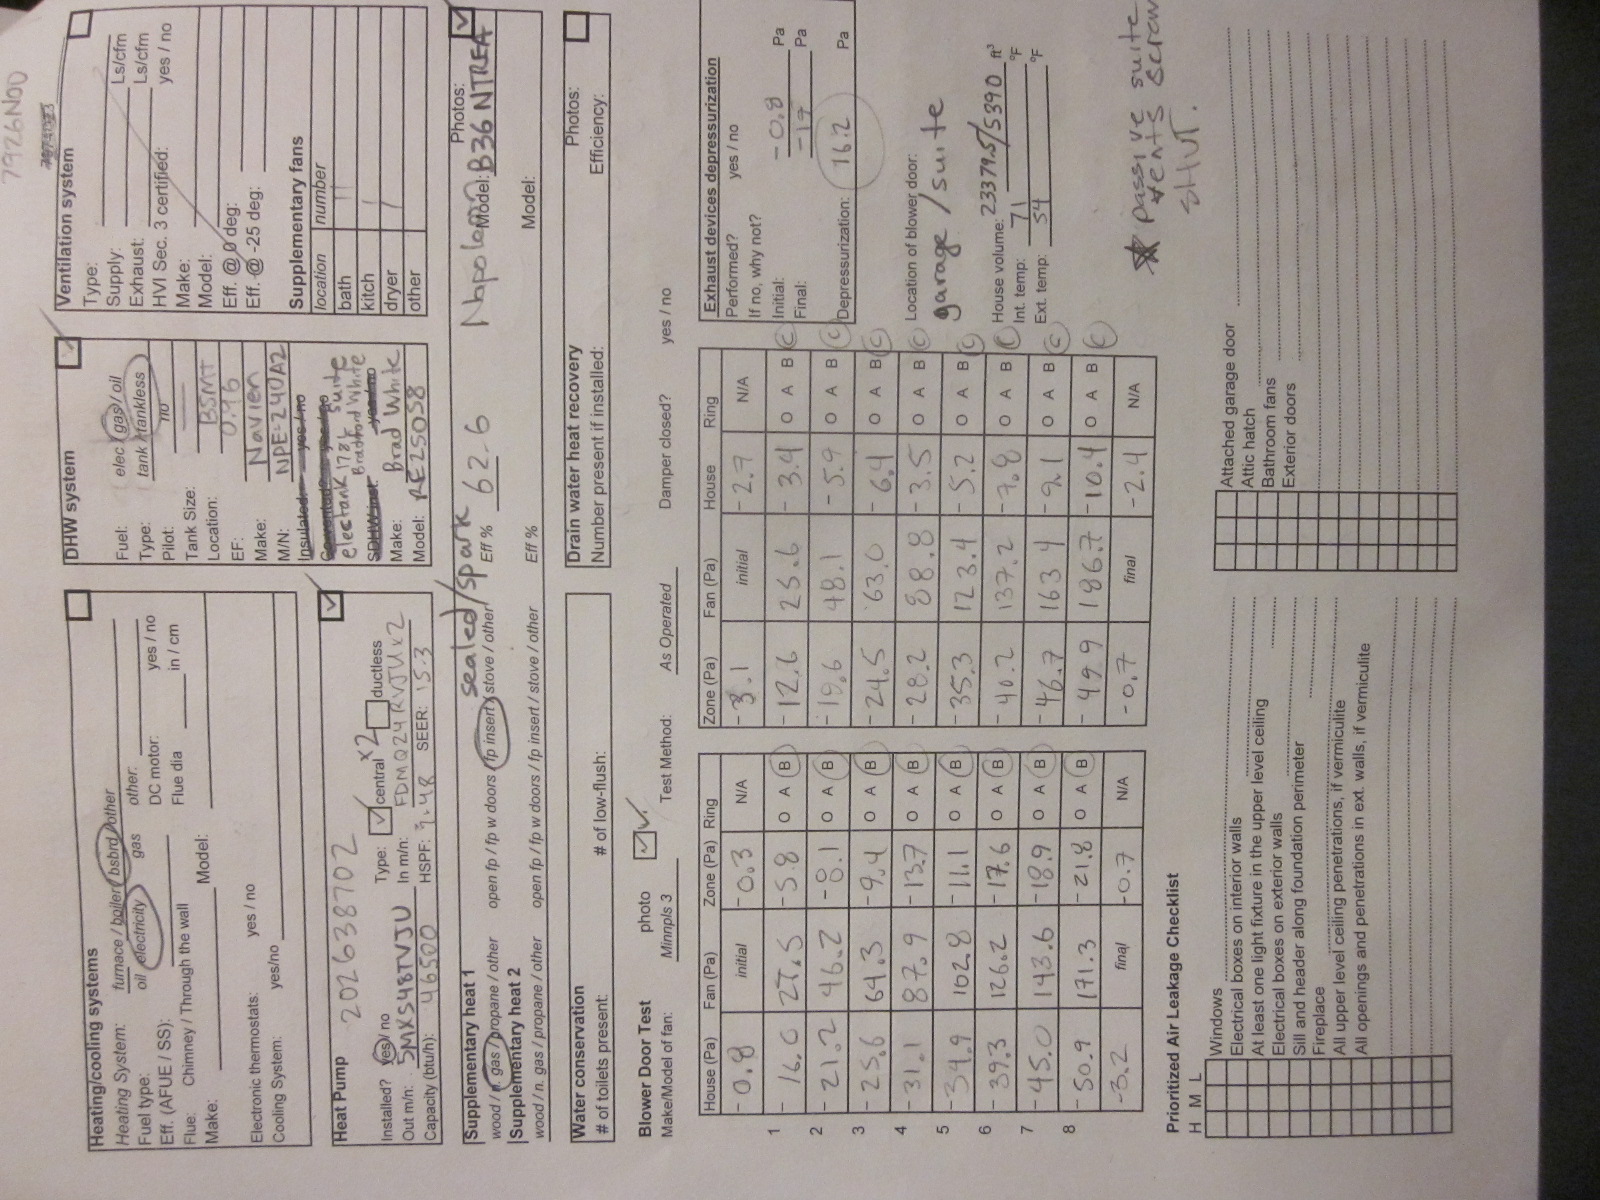 7926NOD
Heating/cooling systems
Heating System: furnace / boiler / bsbrd / other
Fuel type: oil electricity gas other:
Eff. (AFUE / SS): DC motor: yes / no
Flue: Chimney / Through the wall Flue dia in / cm
Make: Model:
Electronic thermostats: yes / no
Cooling System: yes/no
Heat Pump 202638702
Installed? yes / no Type: central x2 ductless
Out m/n: 5MXS48TVJU In m/n: FDMQ24RVJU x2
Capacity (btu/h): 46500 HSPF: 9.48 SEER: 15.3
DHW system
Fuel: elec / gas / oil
Type: tank / tankless
Pilot: no
Tank Size:
Location: BSMT
EF: 0.96
Make: Navien
M/N: NPE-240A2
Insulated yes / no
elec tank 178L suite
Bradford White
SDHW inst. yes / no
Make: Brad White
Model: RE250S8
Ventilation system
Type:
Supply: Ls/cfm
Exhaust: Ls/cfm
HVI Sec. 3 certified: yes / no
Make:
Model:
Eff. @ 0 deg:
Eff. @ -25 deg:
Supplementary fans
location number
bath 11
kitch 1
dryer
other
Supplementary heat 1 sealed/spark Photos:
wood / n. gas / propane / other open fp / fp w doors / fp insert / stove / other Eff % 62.6 Napoleon Model: B36NTREA
Supplementary heat 2
wood / n. gas / propane / other open fp / fp w doors / fp insert / stove / other Eff % Model:
Water conservation
# of toilets present: # of low-flush:
Drain water heat recovery Photos:
Number present if installed: Efficiency:
Blower Door Test photo
Make/Model of fan: Minnpls 3 Test Method: As Operated Damper closed? yes / no
House (Pa) Fan (Pa) Zone (Pa) Ring
-0.8 initial -0.3 N/A
1 -16.0 27.5 -5.8 O A B
2 -21.2 46.2 -8.1 O A B
3 -25.6 64.3 -9.4 O A B
4 -31.1 87.9 -13.7 O A B
5 -34.9 102.8 -11.1 O A B
6 -39.3 126.2 -17.6 O A B
7 -45.0 143.6 -18.9 O A B
8 -50.9 171.3 -21.8 O A B
-3.2 final -0.7 N/A
Zone (Pa) Fan (Pa) House Ring
-3.1 initial -2.7 N/A
-12.6 25.6 -3.4 O A B C
-19.6 48.1 -5.9 O A B C
-24.5 63.0 -6.4 O A B C
-28.2 88.8 -3.5 O A B C
-35.3 123.4 -5.2 O A B C
-40.2 137.2 -7.8 O A B C
-46.7 163.4 -9.1 O A B C
-49.9 186.7 -10.4 O A B C
-0.7 final -2.4 N/A
Exhaust devices depressurization
Performed? yes / no
If no, why not?
Initial: -0.8 Pa
Final: -17 Pa
Depressurization: 16.2 Pa
Location of blower door:
garage / suite
House volume: 23379.5/5390 ft³
Int. temp: 71 °F
Ext. temp: 54 °F
passive suite
vents screw
SHUT.
Prioritized Air Leakage Checklist
H M L
Windows
Electrical boxes on interior walls
At least one light fixture in the upper level ceiling
Electrical boxes on exterior walls
Sill and header along foundation perimeter
Fireplace
All upper level ceiling penetrations, if vermiculite
All openings and penetrations in ext. walls, if vermiculite
Attached garage door
Attic hatch
Bathroom fans
Exterior doors